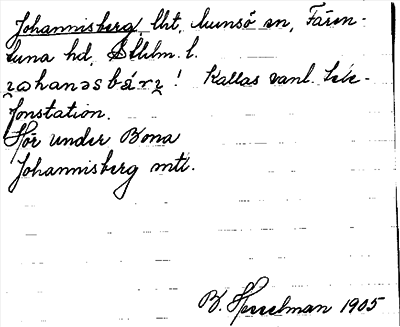 Johannisberg, lht, Munsö sn, Fären-
tuna hd, Sthlm. l.
ʒohanəsbárʒ! Kallas vanl. tele-
fonstation.
Hör under Bona
Johannisberg mtl.
B. Hesselman 1905